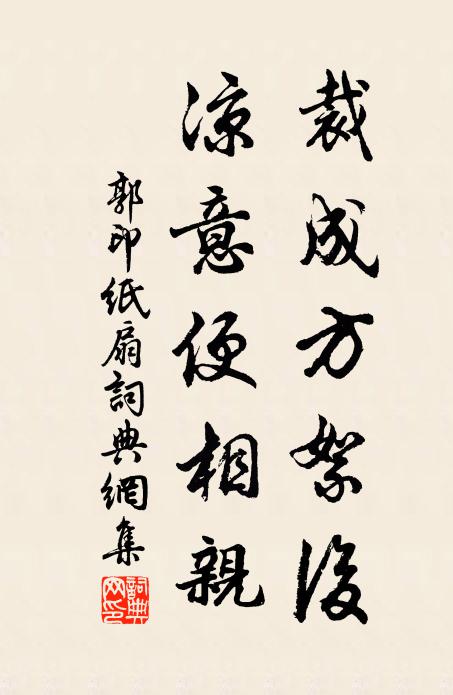 裁成方絮後
涼意便相親
郭印紙扇詞典網集
詞典网印